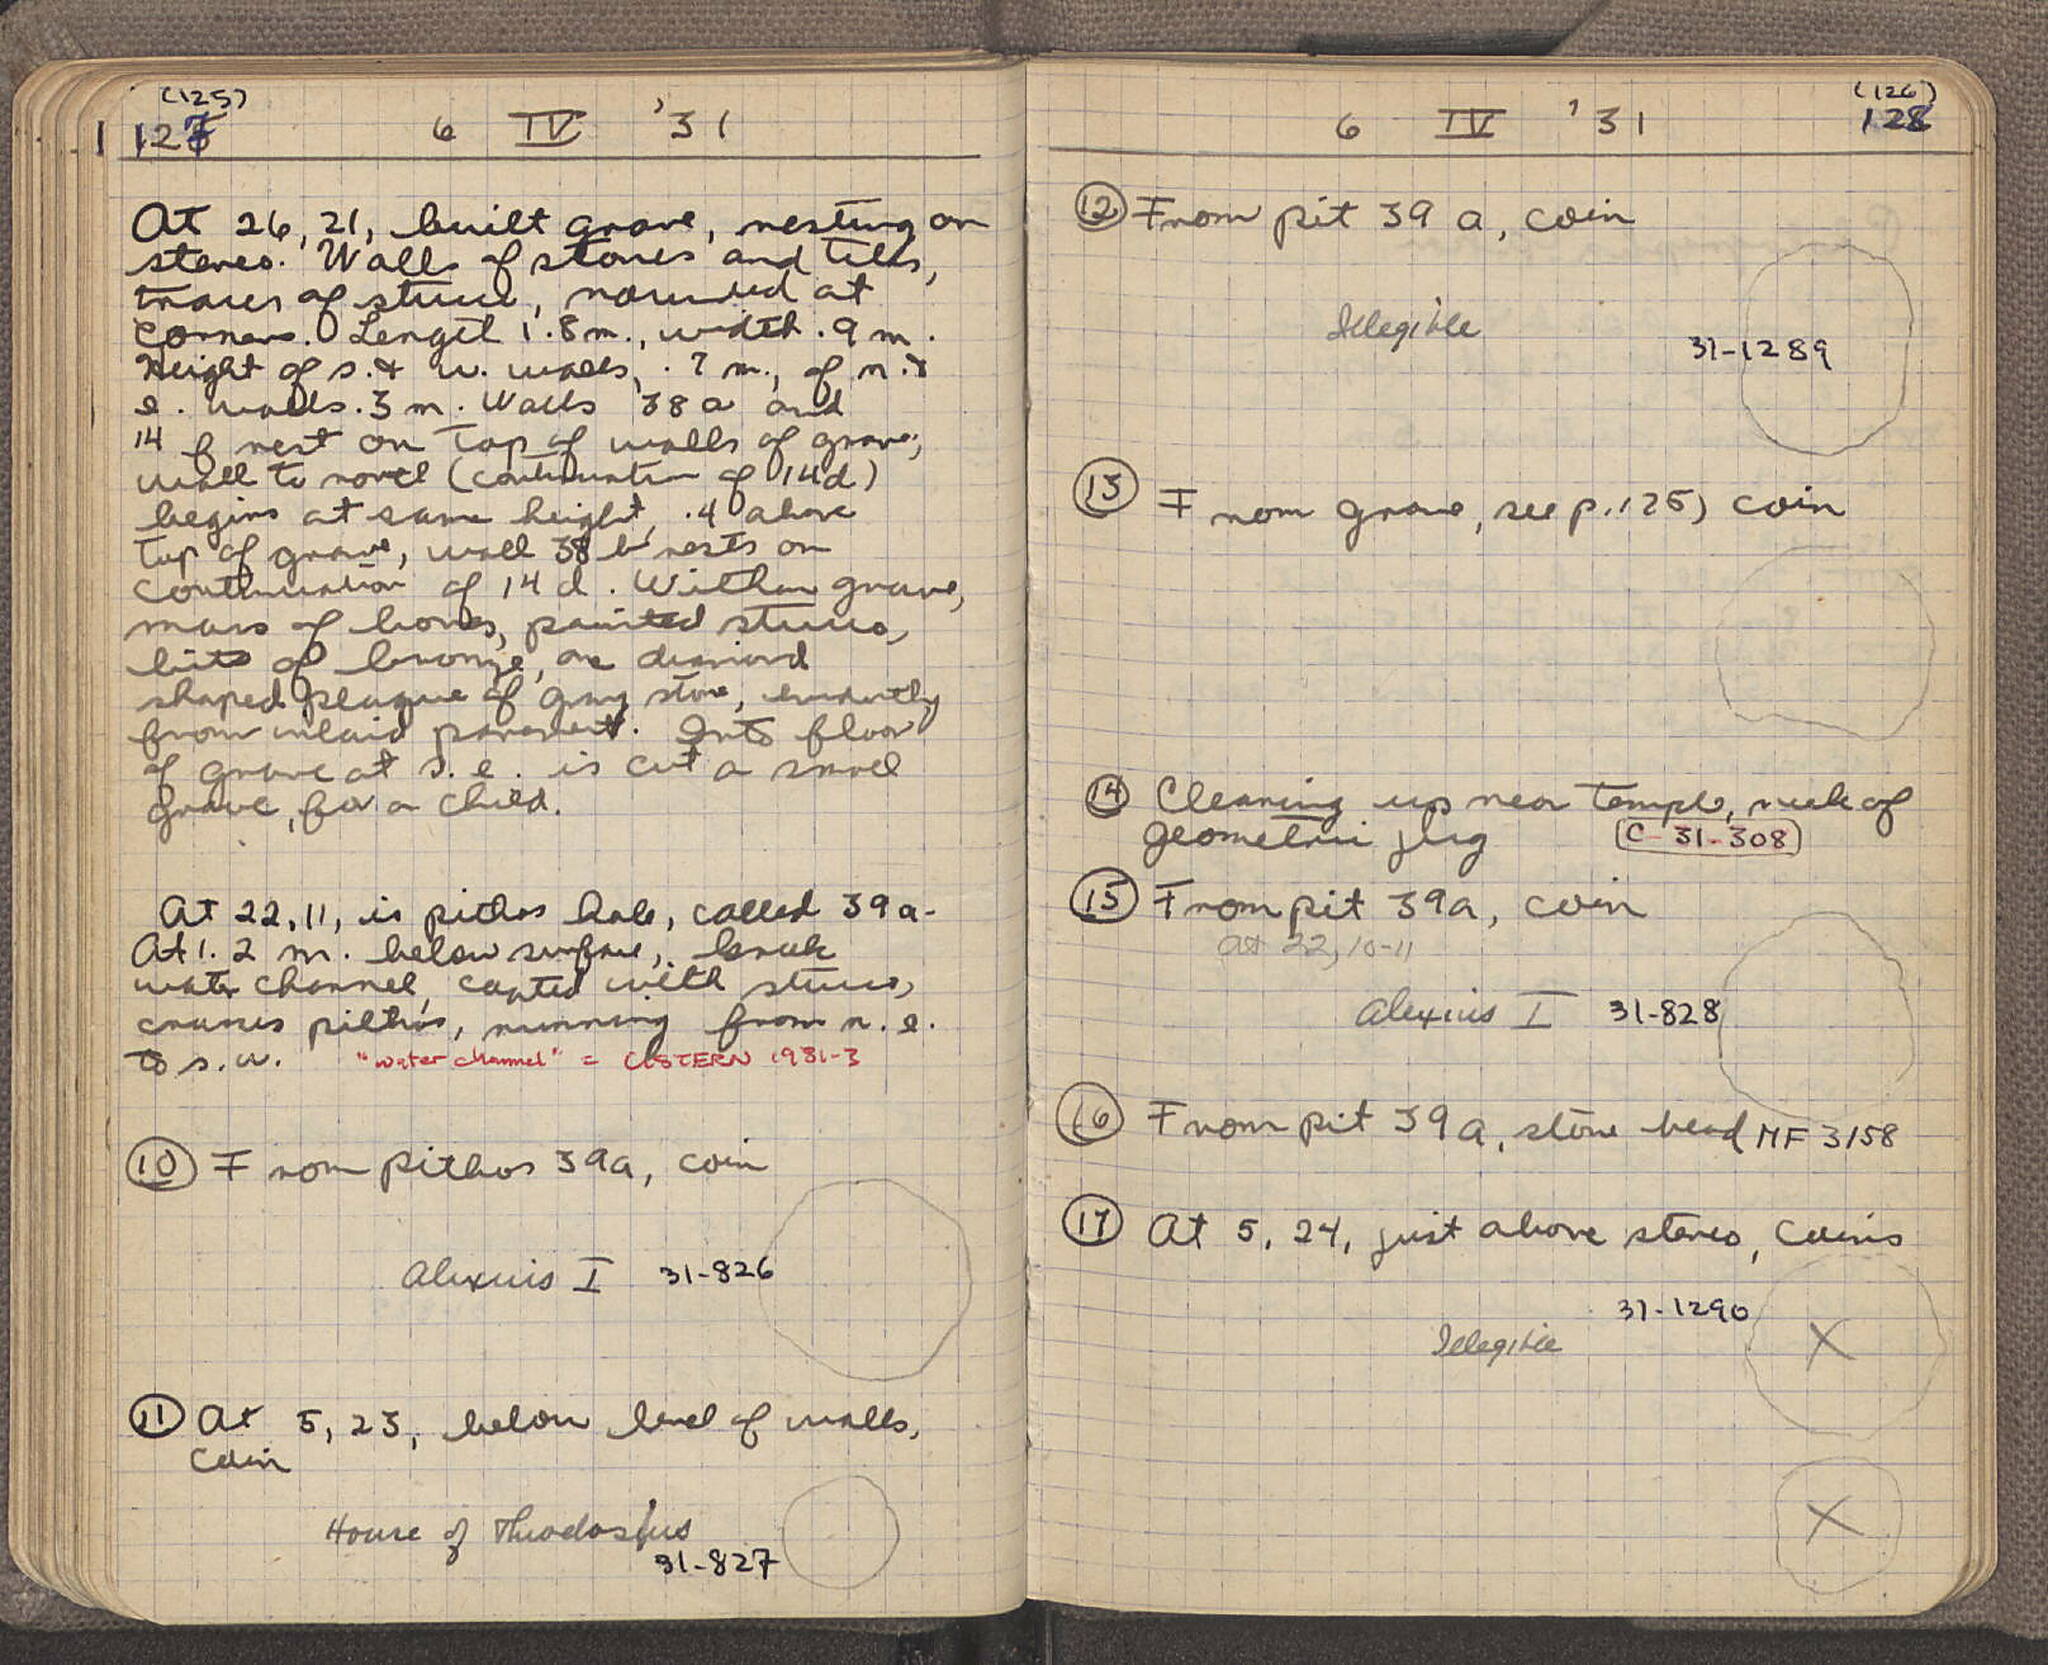 (125)
127
6 IV '31
At 26, 21, built grave, resting on
stereo. Walls of stones and tiles,
traces of stucco, rounded at
corners. Length 1.8 m., width .9 m.
Height of s. & w. walls, .7 m., of n. &
e. walls .3 m. Walls 38 a and
14 f rest on top of walls of grave;
wall to north (continuation of 14d)
begins at same height, .4 above
top of grave, wall 38 b rests on
continuation of 14 d. Within grave,
mass of bones, painted stucco,
bits of bronze, one diamond
shaped plaque of gray stone, evidently
from inlaid pavement. Into floor
of grave at s. e. is cut a small
grave, for a child.
At 22, 11, is pithos hole, called 39a.
At 1.2 m. below surface, break
water channel, coated with stucco,
crosses pithos, running from n. e.
to s. w. "water channel" = CISTERN 1981-3
10 From pithos 39a, coin
Alexius I 31-826
11 At 5, 23, below level of walls,
coin
House of Theodosius
31-827
(126)
6 IV '31 128
12 From pit 39 a, coin
Illegible
31-1289
13 From grave, see p. 125) coin
14 Cleaning up near temple, neck of
geometric jug C-31-308
15 From pit 39a, coin
at 22, 10-11
Alexius I 31-828
16 From pit 39a, stone bead MF 3158
17 At 5, 24, just above stereo, coins
31-1290
Illegible
X
X